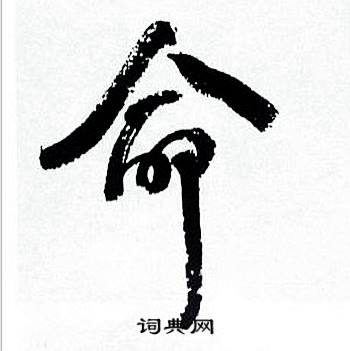 命
词典网